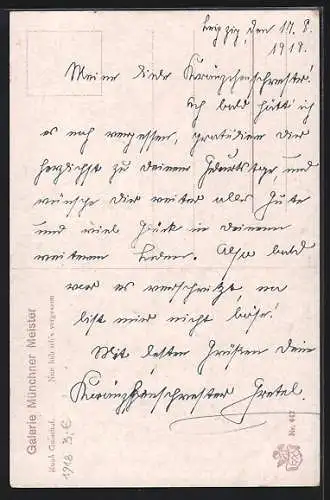 Leipzig, den 17. 8.
1918.
Meine liebe Kränzchenschwester!
Ach bald hätt ich
es noch vergessen, gratuliere dir
herzlichst zu deinem Geburtstage, und
wünsche dir weiter alles Gute
und viel Glück in deinem
weiteren Leben. Also bald
war es verschwitzt, na
bist mir nicht böse!
Mit besten Grüßen Dein
Kränzchenschwester Gretel.
Galerie Münchner Meister
Nun hab ich's vergessen
1918 3,-€
Nr. 447